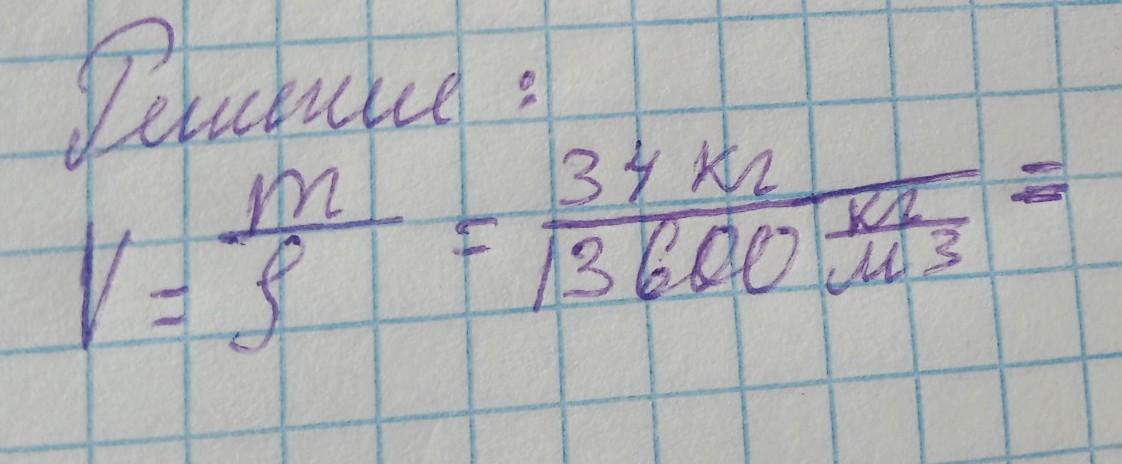 Решение:
V = m/ρ = 34 кг / 13600 кг/м3 =